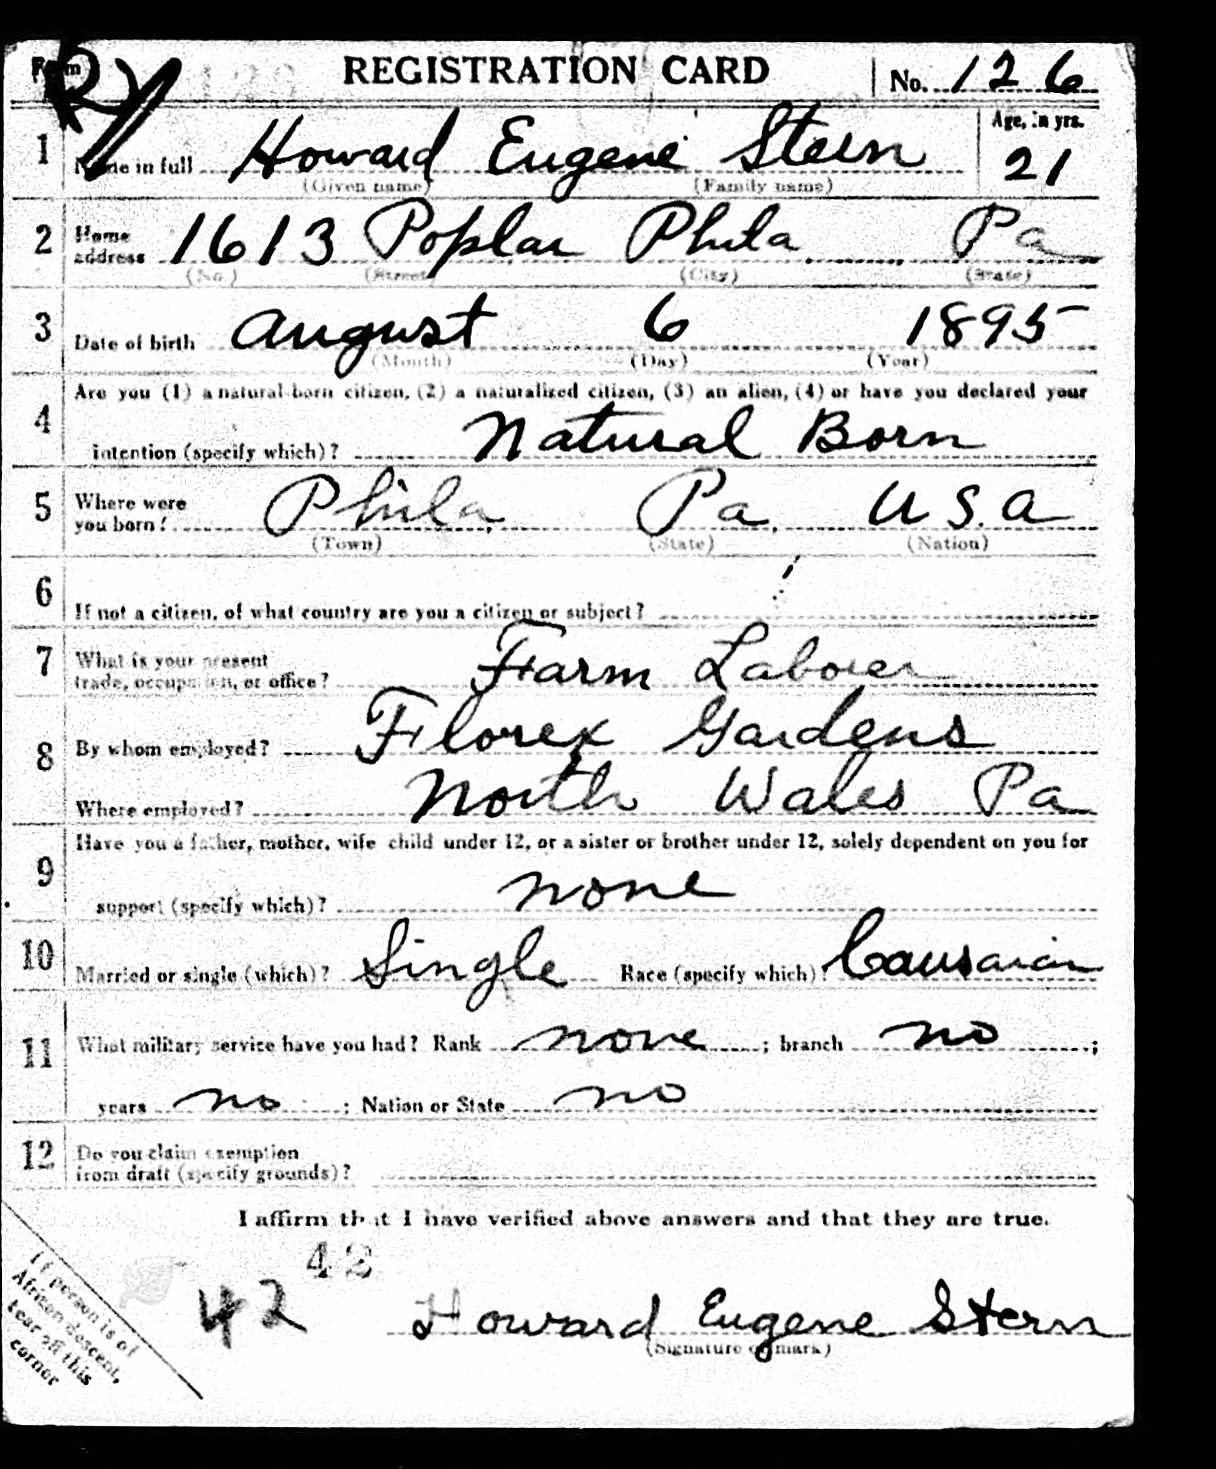 Form 1 REGISTRATION CARD No. 126
1 Name in full Howard Eugene Stern Age, in yrs. 21
(Given name) (Family name)
2 Home address 1613 Poplar Phila Pa
(No.) (Street) (City) (State)
3 Date of birth August 6 1895
(Month) (Day) (Year)
4 Are you (1) a natural-born citizen, (2) a naturalized citizen, (3) an alien, (4) or have you declared your
intention (specify which)? Natural Born
5 Where were you born? Phila, Pa, U S. a
(Town) (State) (Nation)
6 If not a citizen, of what country are you a citizen or subject?
7 What is your present trade, occupation, or office? Farm Laborer
8 By whom employed? Florex Gardens
Where employed? North Wales Pa
9 Have you a father, mother, wife child under 12, or a sister or brother under 12, solely dependent on you for
support (specify which)? none
10 Married or single (which)? Single Race (specify which)? Causaian
11 What military service have you had? Rank none ; branch no ;
years no ; Nation or State no
12 Do you claim exemption from draft (specify grounds)?
I affirm that I have verified above answers and that they are true.
42
42 Howard Eugene Stern
(Signature or mark)
If person is of
African descent,
tear off this
corner